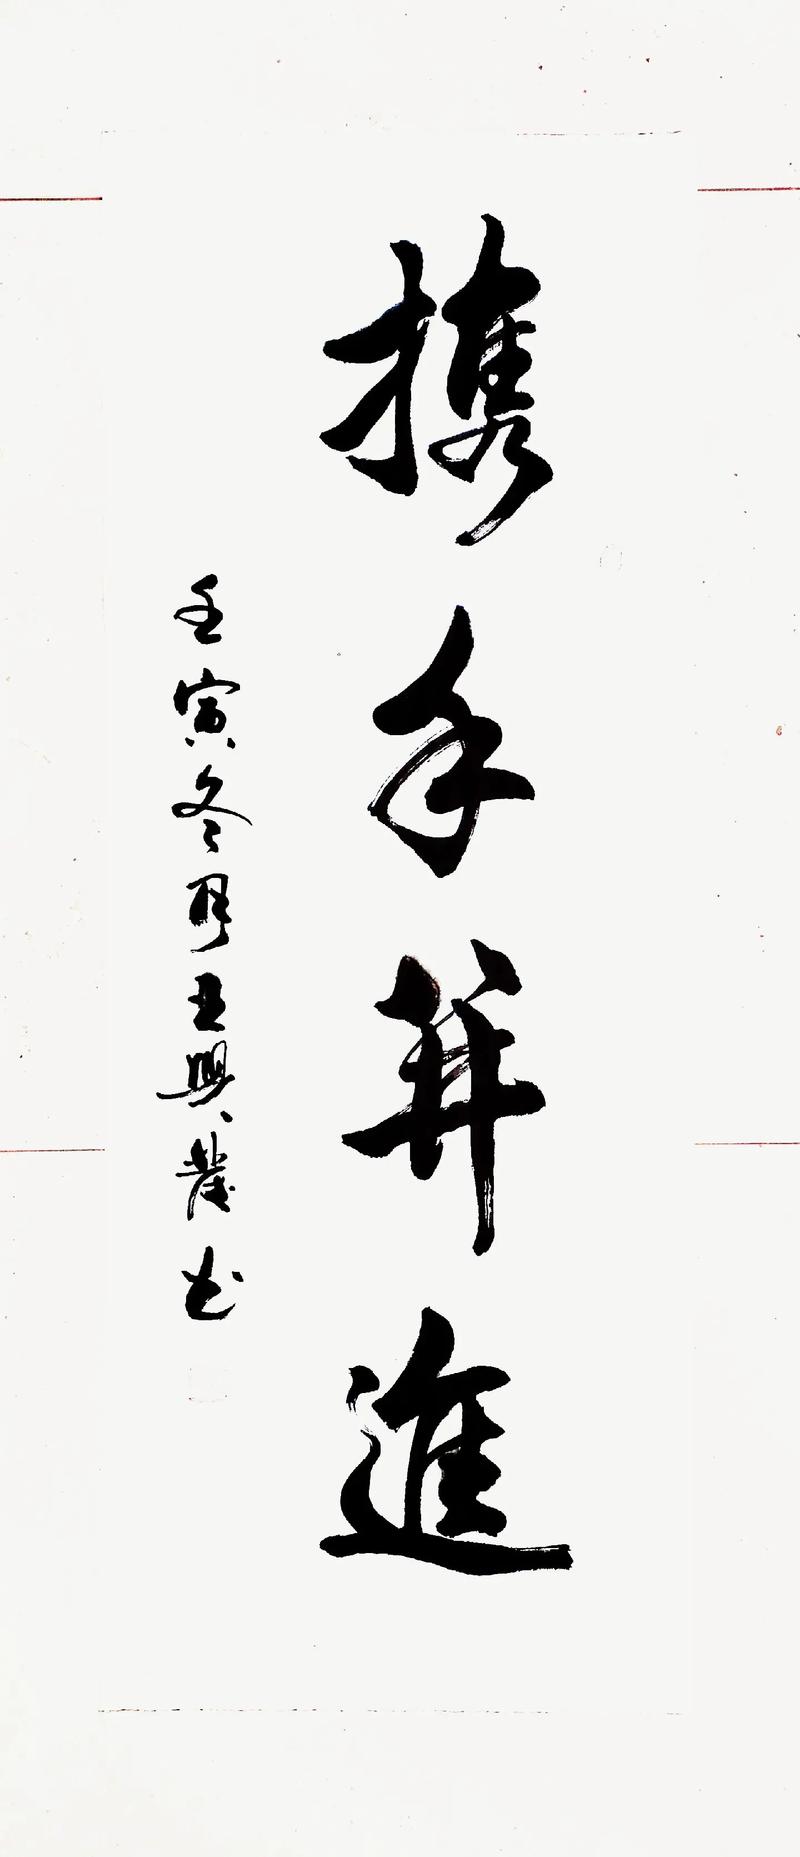 携手并進
壬寅冬月王興農书